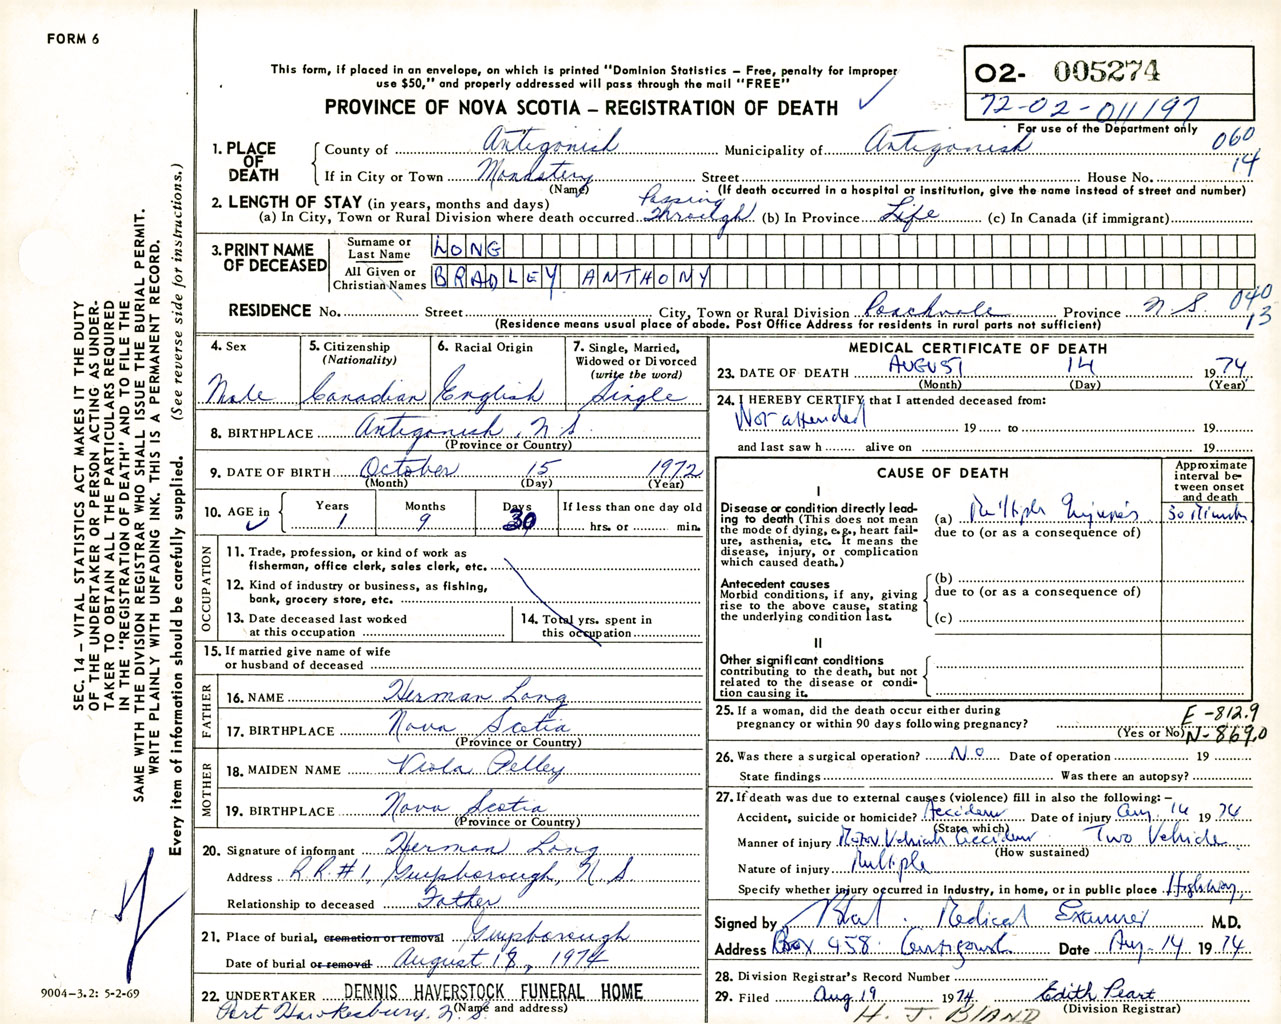 FORM 6
This form, if placed in an envelope, on which is printed "Dominion Statistics – Free, penalty for improper
use $50," and properly addressed will pass through the mail "FREE"
PROVINCE OF NOVA SCOTIA – REGISTRATION OF DEATH
02- 005274
72-02-011197
For use of the Department only
060
14
1. PLACE OF DEATH
County of Antigonish Municipality of Antigonish
If in City or Town Monastery Street House No.
(Name) (If death occurred in a hospital or institution, give the name instead of street and number)
2. LENGTH OF STAY (in years, months and days) Passing
(a) In City, Town or Rural Division where death occurred through (b) In Province Life (c) In Canada (if immigrant)
3. PRINT NAME OF DECEASED
Surname or Last Name LONG
All Given or Christian Names BRADLEY ANTHONY
RESIDENCE No. Street City, Town or Rural Division Province N.S. 040
13
(Residence means usual place of abode. Post Office Address for residents in rural parts not sufficient)
4. Sex Male
5. Citizenship (Nationality) Canadian
6. Racial Origin English
7. Single, Married, Widowed or Divorced (write the word) Single
8. BIRTHPLACE Antigonish, N.S.
(Province or Country)
9. DATE OF BIRTH October 15 1972
(Month) (Day) (Year)
10. AGE in Years 1 Months 9 Days 30 If less than one day old hrs. or min.
OCCUPATION
11. Trade, profession, or kind of work as
fisherman, office clerk, sales clerk, etc.
12. Kind of industry or business, as fishing,
bank, grocery store, etc.
13. Date deceased last worked
at this occupation
14. Total yrs. spent in
this occupation
15. If married give name of wife
or husband of deceased
FATHER
16. NAME Herman Long
17. BIRTHPLACE Nova Scotia
(Province or Country)
MOTHER
18. MAIDEN NAME Viola Pelley
19. BIRTHPLACE Nova Scotia
(Province or Country)
20. Signature of informant Herman Long
Address R.R.#1, Guysborough, N.S.
Relationship to deceased Father
21. Place of burial, cremation or removal Guysborough
Date of burial or removal August 18, 1974
22. UNDERTAKER DENNIS HAVERSTOCK FUNERAL HOME
Port Hawkesbury, N.S. (Name and address)
MEDICAL CERTIFICATE OF DEATH
23. DATE OF DEATH AUGUST 14 1974
(Month) (Day) (Year)
24. I HEREBY CERTIFY that I attended deceased from:
Not attended 19 to 19
and last saw h alive on 19
CAUSE OF DEATH
Approximate interval between onset and death
I
Disease or condition directly leading to death (This does not mean the mode of dying, e.g., heart failure, asthenia, etc. It means the disease, injury, or complication which caused death.)
(a) Multiple Injuries 30 Minutes
due to (or as a consequence of)
Antecedent causes
Morbid conditions, if any, giving rise to the above cause, stating the underlying condition last.
(b)
due to (or as a consequence of)
(c)
II
Other significant conditions
contributing to the death, but not related to the disease or condition causing it.
25. If a woman, did the death occur either during
pregnancy or within 90 days following pregnancy?
(Yes or No)
E-812.9
N-869.0
26. Was there a surgical operation? No Date of operation 19
State findings Was there an autopsy?
27. If death was due to external causes (violence) fill in also the following: –
Accident, suicide or homicide? Accident Date of injury Aug. 14 1974
(State which)
Manner of injury Motor Vehicle Accident Two Vehicle
(How sustained)
Nature of injury Multiple
Specify whether injury occurred in Industry, in home, or in public place Highway
Signed by Medical Examiner M.D.
Address Box 458 Antigonish Date Aug-14 1974
28. Division Registrar's Record Number
29. Filed Aug 19 1974 Edith Peart
(Division Registrar)
H. J. BLAND
SEC. 14 – VITAL STATISTICS ACT MAKES IT THE DUTY
OF THE UNDERTAKER OR PERSON ACTING AS UNDER-
TAKER TO OBTAIN ALL THE PARTICULARS REQUIRED
IN THE "REGISTRATION OF DEATH" AND TO FILE THE
SAME WITH THE DIVISION REGISTRAR WHO SHALL ISSUE THE BURIAL PERMIT.
WRITE PLAINLY WITH UNFADING INK. THIS IS A PERMANENT RECORD.
Every item of information should be carefully supplied. (See reverse side for instructions.)
9004-3.2: 5-2-69